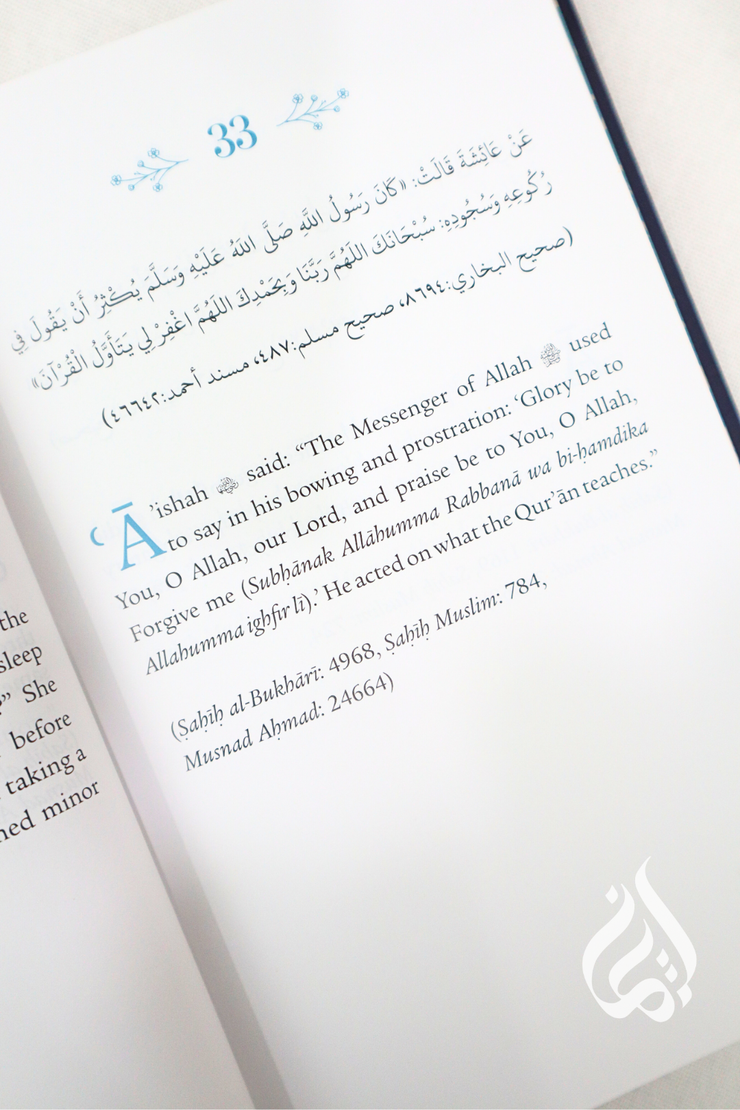 the
sleep
?” She
before
taking a
ned minor
33
عَنْ عَائِشَةَ قَالَتْ: «كَانَ رَسُولُ اللَّهِ صَلَّى اللهُ عَلَيْهِ وَسَلَّمَ يُكْثِرُ أَنْ يَقُولَ فِي
رُكُوعِهِ وَسُجُودِهِ: سُبْحَانَكَ اللهُمَّ رَبَّنَا وَبِحَمْدِكَ اللهُمَّ اغْفِرْ لِي يَتَأَوَّلُ الْقُرْآنَ»
(صحيح البخاري:٨٦٩٤، صحيح مسلم:٤٨٧، مسند أحمد:٤٦٦٤٢)
ʿĀ’ishah said: “The Messenger of Allah ﷺ used
to say in his bowing and prostration: ‘Glory be to
You, O Allah, our Lord, and praise be to You, O Allah,
Forgive me (Subḥānak Allāhumma Rabbanā wa bi-ḥamdika
Allahumma ighfir lī).’ He acted on what the Qur’ān teaches.”
(Ṣaḥīḥ al-Bukhārī: 4968, Ṣaḥīḥ Muslim: 784,
Musnad Aḥmad: 24664)